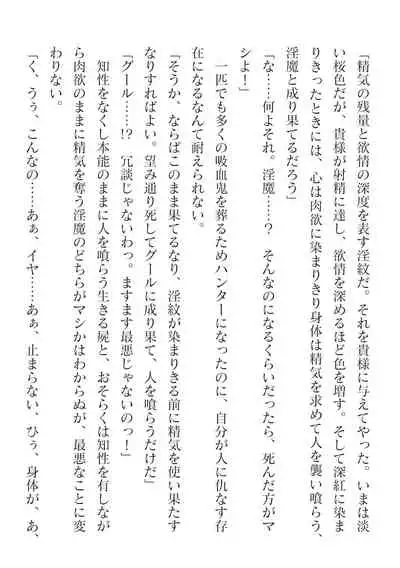 「精気の残量と欲情の深度を表す淫紋だ。それを貴様に与えてやった。いまは淡
い桜色だが、貴様が射精に達し、欲情を深めるほど色を増す。そして深紅に染ま
りきったときには、心は肉欲に染まりきり身体は精気を求めて人を襲い喰らう、
淫魔と成り果てるだろう」
「な……何よそれ。淫魔……？　そんなのになるくらいだったら、死んだ方がマ
シよ！」
一匹でも多くの吸血鬼を葬るためハンターになったのに、自分が人に仇なす存
在になるなんて耐えられない。
「そうか、ならばこのまま果てるなり、淫紋が染まりきる前に精気を使い果たす
なりすればよい。望み通り死してグールに成り果て、人を喰らうだけだ」
「グール……!?　冗談じゃないわっ。ますます最悪じゃないのっ！」
知性をなくし本能のままに人を喰らう生きる屍と、おそらくは知性を有しなが
ら肉欲のままに精気を奪う淫魔のどちらがマシかはわからぬが、最悪なことに変
わりない。
「く、うぅ、こんなの……あぁ、イヤ……あぁ、止まらない、ひぅ、身体が、あ、